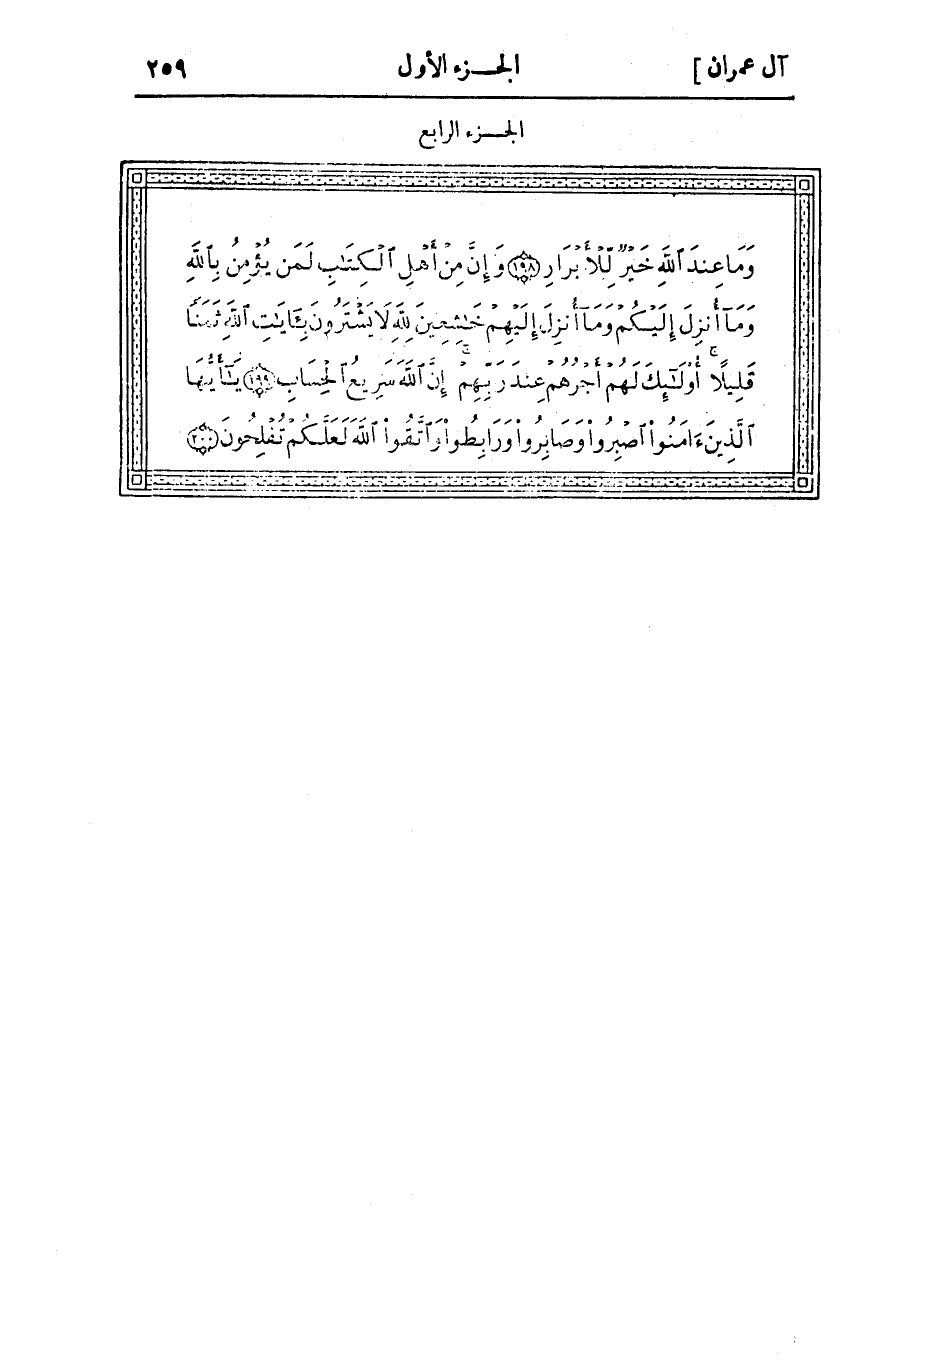 آل عمران ] الجـــزء الأول ٢٥٩
الجـــزء الرابع
وَمَا عِندَ ٱللَّهِ خَيْرٌ لِّلْأَبْرَارِ ﴿١٩٨﴾ وَإِنَّ مِنْ أَهْلِ ٱلْكِتَٰبِ لَمَن يُؤْمِنُ بِٱللَّهِ
وَمَآ أُنزِلَ إِلَيْكُمْ وَمَآ أُنزِلَ إِلَيْهِمْ خَٰشِعِينَ لِلَّهِ لَا يَشْتَرُونَ بِـَٔايَٰتِ ٱللَّهِ ثَمَنًا
قَلِيلًا ۚ أُوْلَٰٓئِكَ لَهُمْ أَجْرُهُمْ عِندَ رَبِّهِمْ ۗ إِنَّ ٱللَّهَ سَرِيعُ ٱلْحِسَابِ ﴿١٩٩﴾ يَٰٓأَيُّهَا
ٱلَّذِينَ ءَامَنُوا۟ ٱصْبِرُوا۟ وَصَابِرُوا۟ وَرَابِطُوا۟ وَٱتَّقُوا۟ ٱللَّهَ لَعَلَّكُمْ تُفْلِحُونَ ﴿٢٠٠﴾